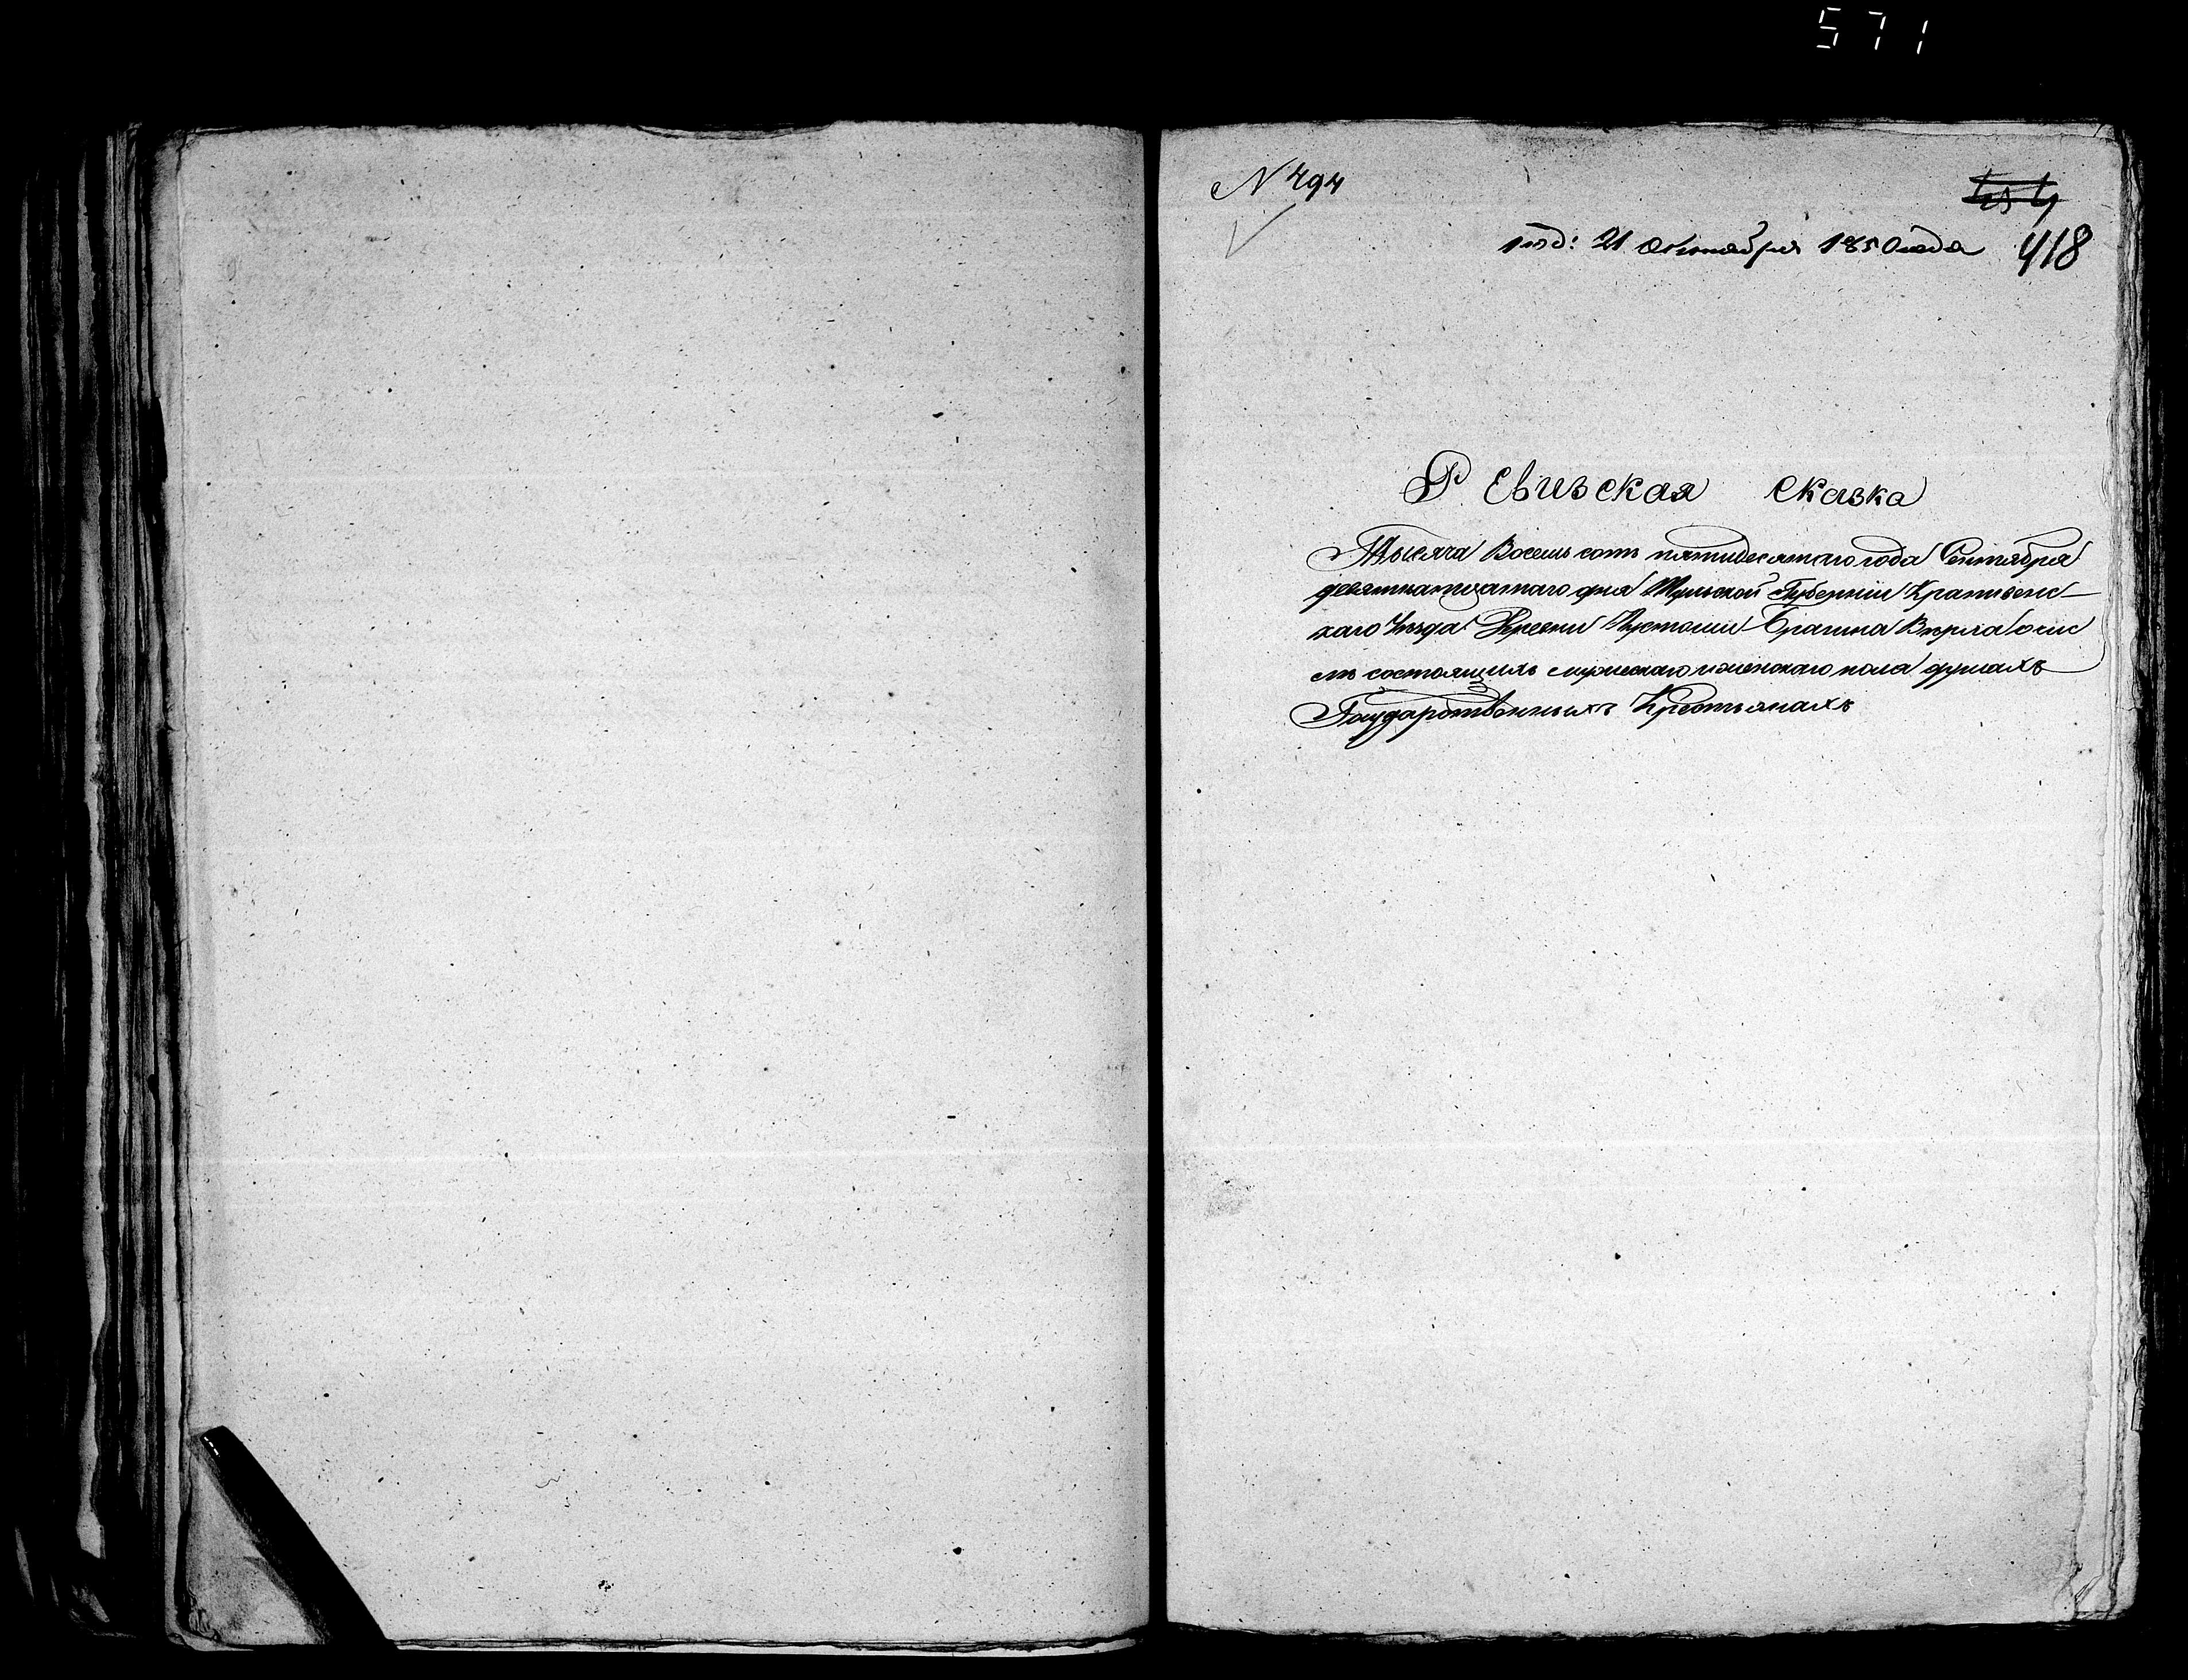 571
N 494
под: 21 Октября 1850 года 418
Ревизская Сказка
Тысяча Восемь сотъ пятидесятаго года Сентября
девятнатцатаго дня Тульской Губерніи Крапивенс-
каго Уезда Деревни
состоящихъ мужескаго и женскаго пола душахъ
Государственныхъ Крестьянахъ